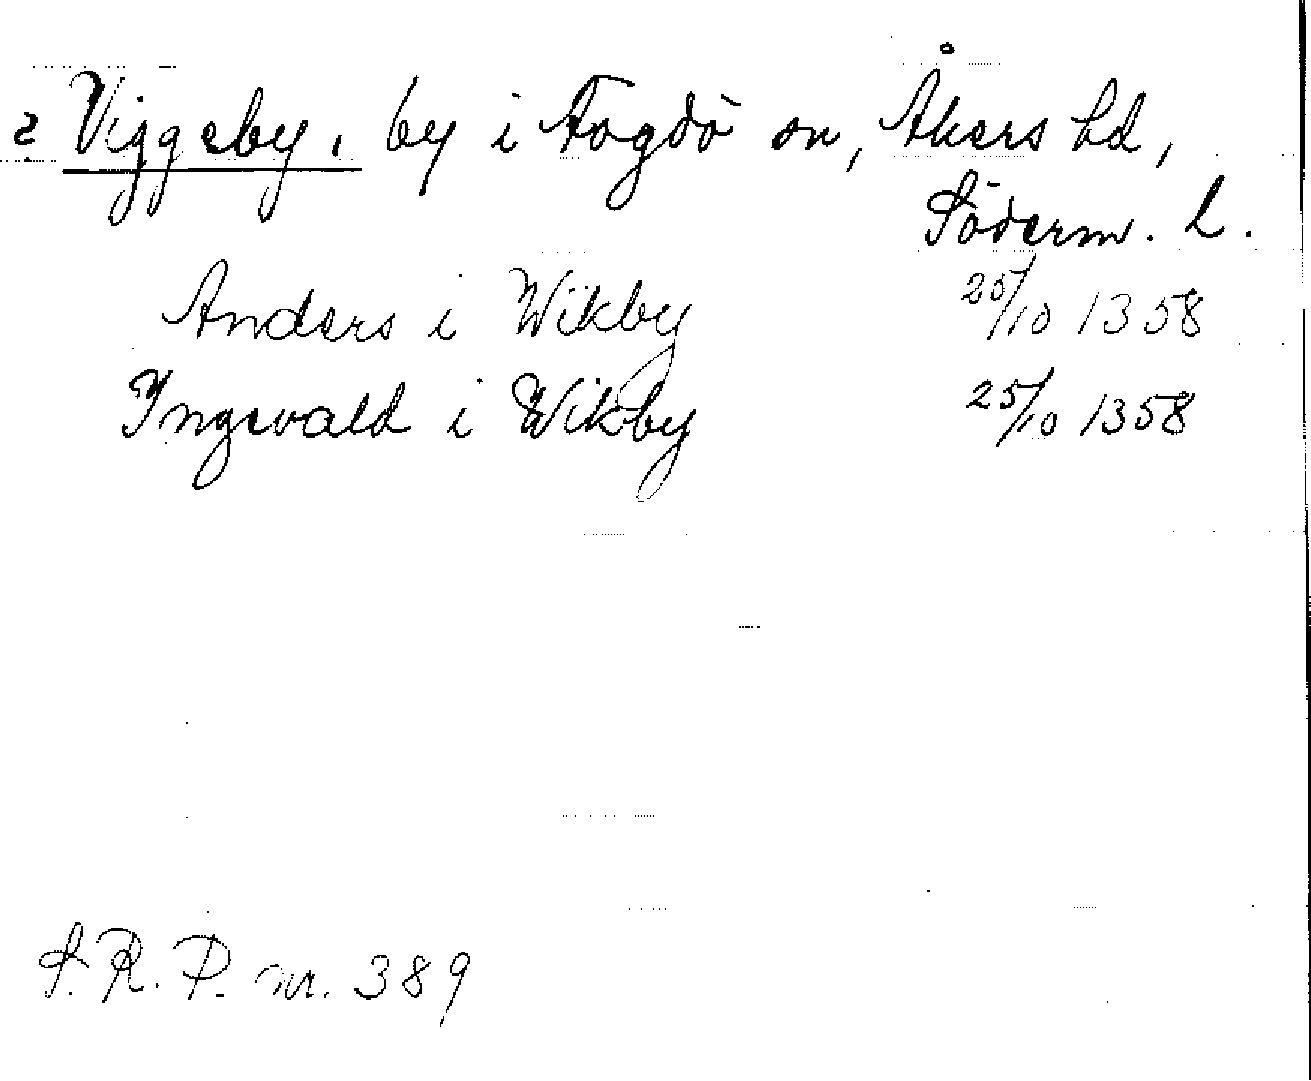 ? Viggeby, by i Fogdö sn, Åkers hd,
Söderm. l.
Anders i Wikby 25/10 1358
Ingevald i Wikby 25/10 1358
S.R.P. nr. 389